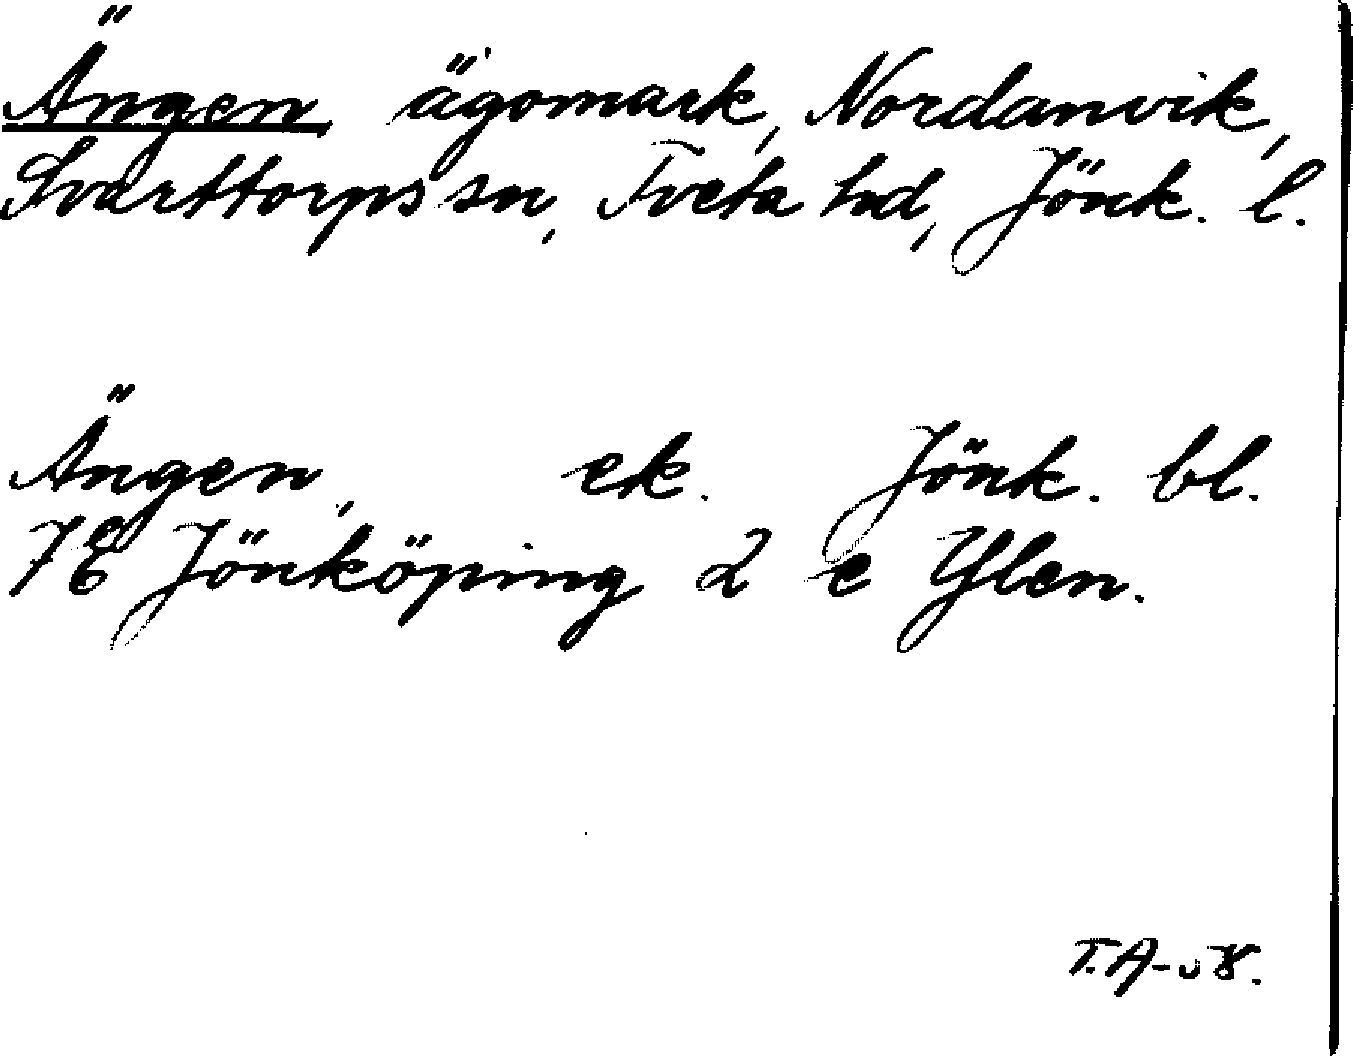 Ängen ägomark, Nordanvik,
Svarttorps sn, Tveta hd, Jönk. l.
Ängen, ek. Jönk. bl.
7E Jönköping 2 e Ylen.
T.A-58.